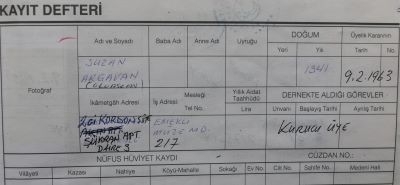 KAYIT DEFTERİ
Adı ve Soyadı Baba Adı Anne Adı Uyruğu DOĞUM Üyelik Kararının
Yeri Yılı Tarih No.
Fotoğraf
SUZAN
AKGAVAN
1341
9.2.1963
İkâmetgâh Adresi İş Adresi Mesleği Yıllık Aidat Taahhüdü DERNEKTE ALDIĞI GÖREVLER
Tel No. Lira Unvanı Başlayış Tarihi Ayrılış Tarihi
KORDON
ŞÜKRAN APT
DAİRE 3
EMEKLİ
MÜZE MD.
217
Kurucu ÜYE
NÜFUS HÜVİYET KAYDI CÜZDAN NO.
Vilâyeti Kazası Nahiye Köyü-Mahalle Sokağı Ev No. Cilt No. Sahife No. Medeni Hali